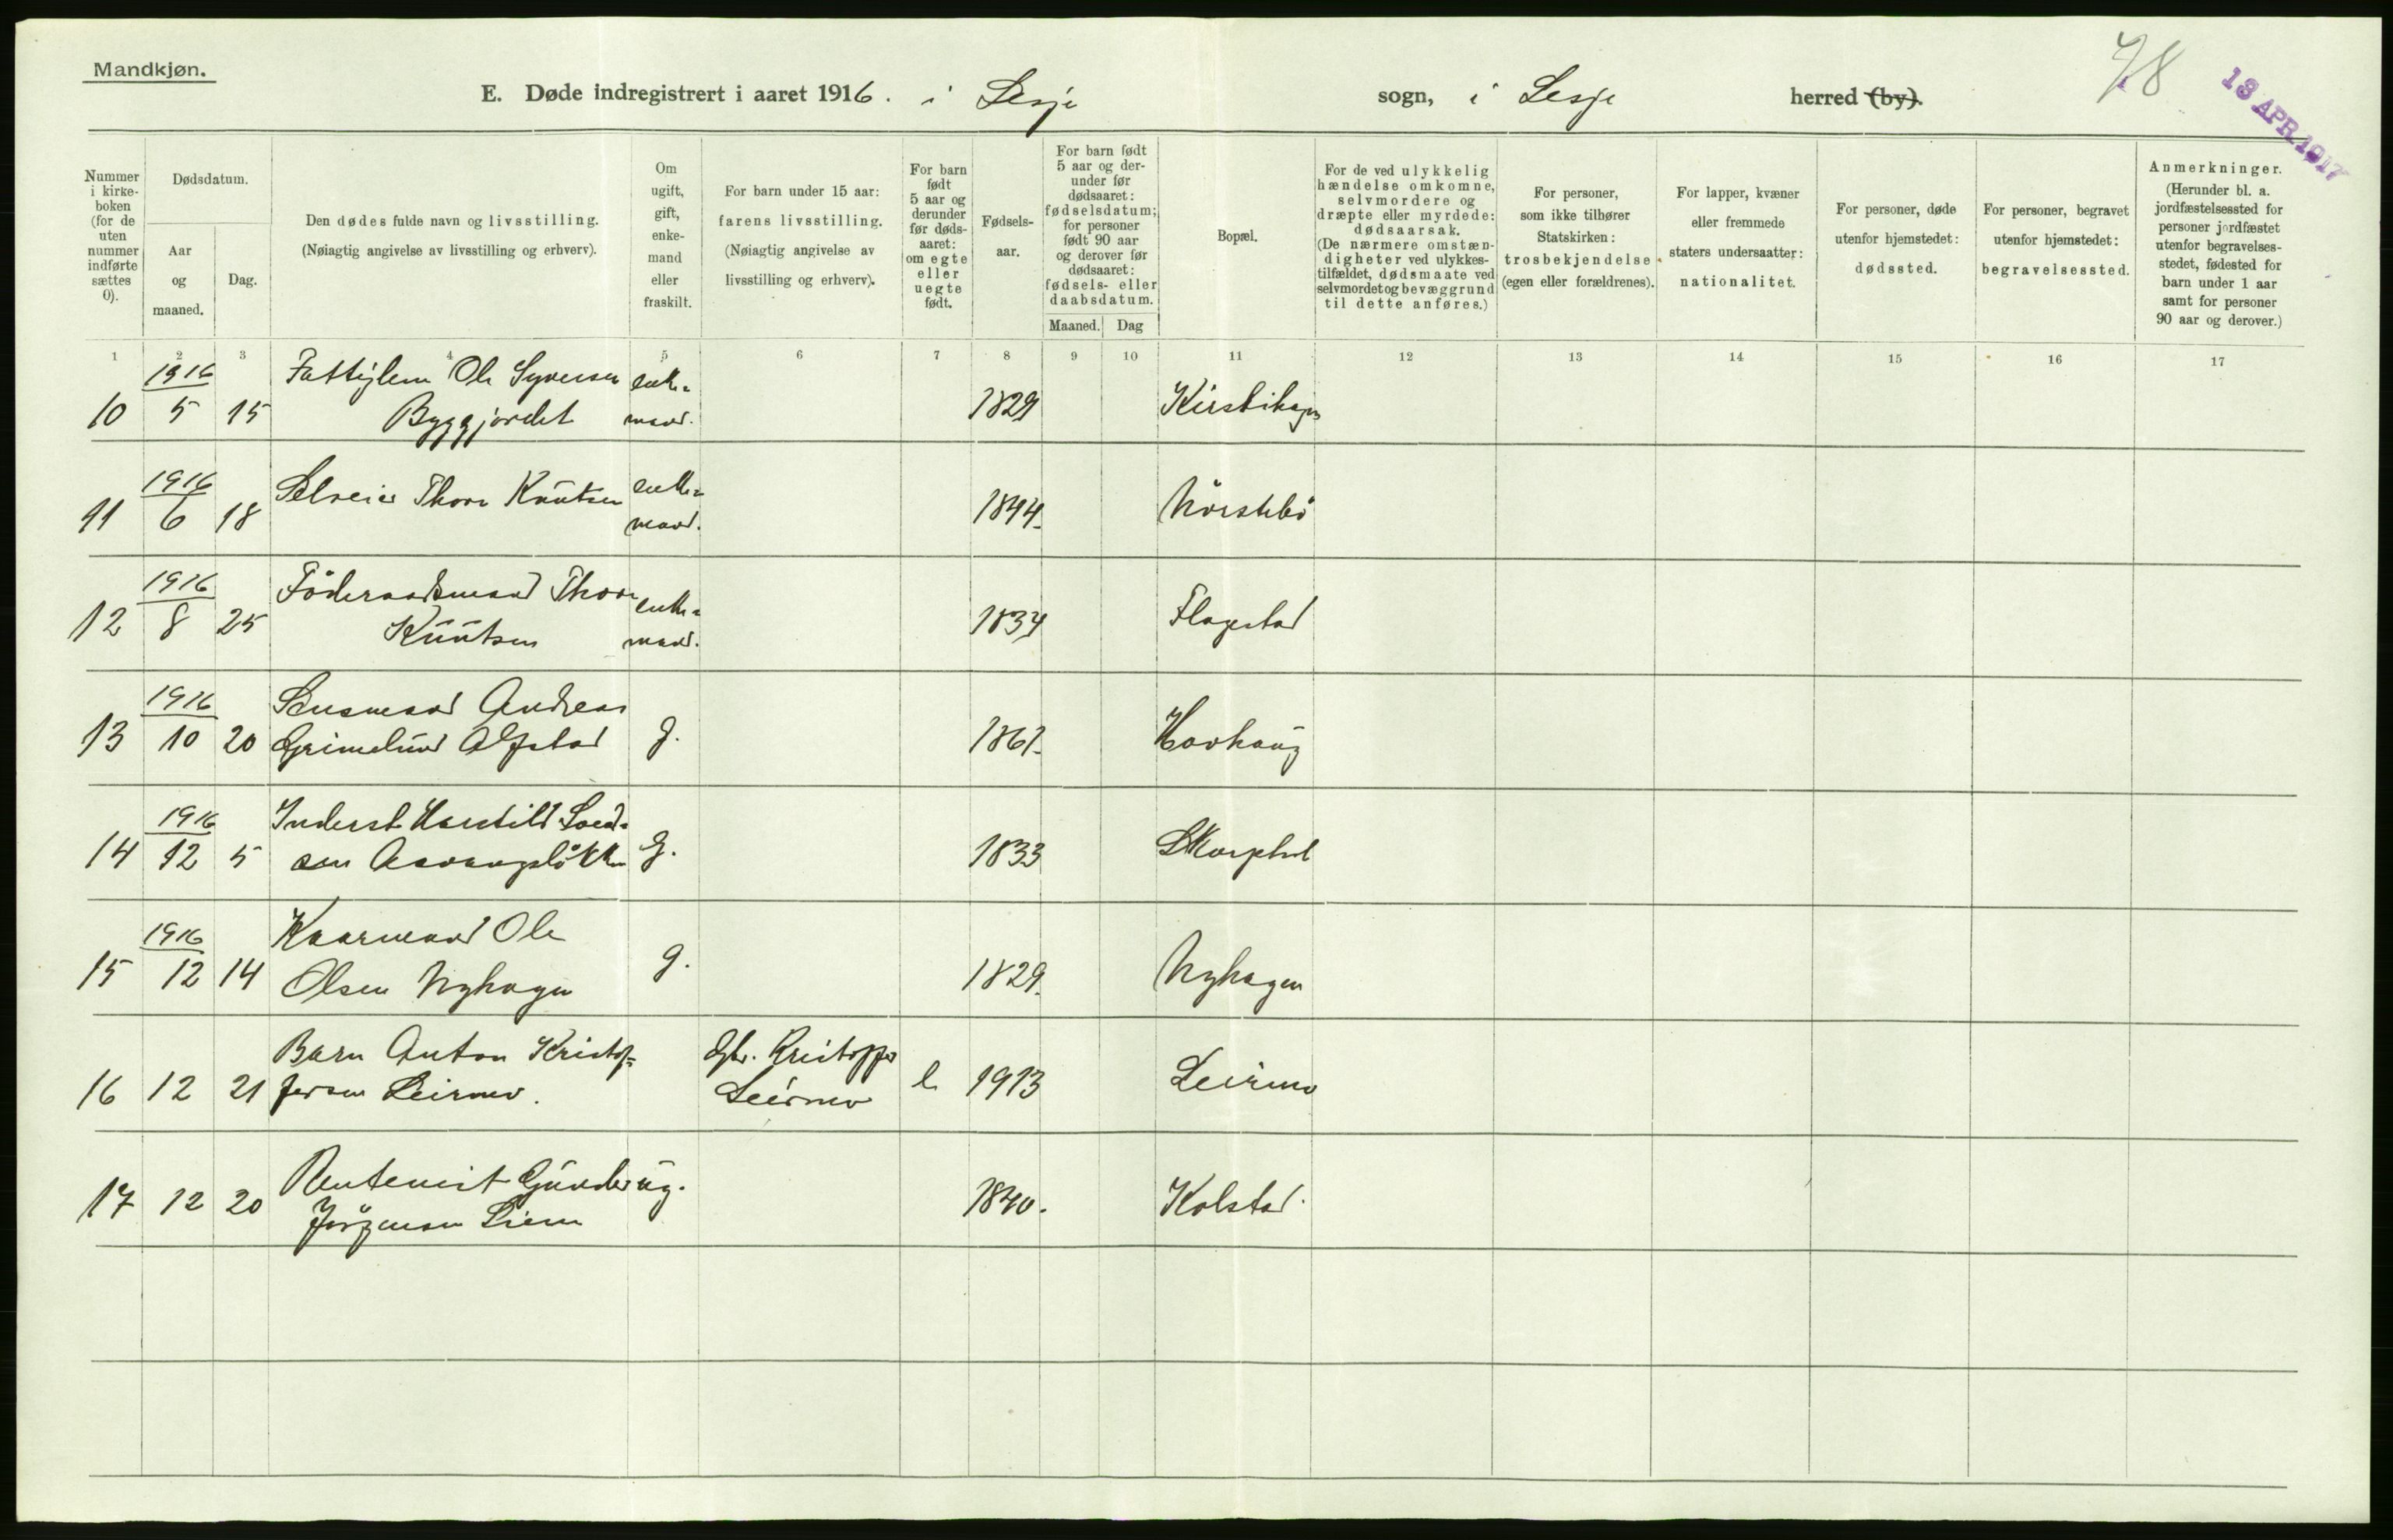 Mandkjøn.
E. Døde indregistrert i aaret 1916. i Lesje sogn, i Lesje herred (by).
78
13 APR. 1917
Nummer i kirke-boken (for de uten nummer indførte sættes 0).
Dødsdatum.
Aar og maaned.
Dag.
Den dødes fulde navn og livsstilling.
(Nøiagtig angivelse av livsstilling og erhverv).
Om ugift, gift, enke-mand eller fraskilt.
For barn under 15 aar: farens livsstilling.
(Nøiagtig angivelse av livsstilling og erhverv).
For barn født 5 aar og derunder før døds-aaret: om egte eller uegte født.
Fødsels-aar.
For barn født 5 aar og der-under før dødsaaret: fødselsdatum; for personer født 90 aar og derover før dødsaaret: fødsels- eller daabsdatum.
Maaned. Dag
Bopæl.
For de ved ulykkelig hændelse omkomne, selvmordere og dræpte eller myrdede: dødsaarsak. (De nærmere omstæn-digheter ved ulykkes-tilfældet, dødsmaate ved selvmordet og bevæggrund til dette anføres.)
For personer, som ikke tilhører Statskirken: trosbekjendelse (egen eller forældrenes).
For lapper, kvæner eller fremmede staters undersaatter: nationalitet.
For personer, døde utenfor hjemstedet: dødssted.
For personer, begravet utenfor hjemstedet: begravelsessted.
Anmerkninger.
(Herunder bl. a. jordfæstelsessted for personer jordfæstet utenfor begravelses-stedet, fødested for barn under 1 aar samt for personer 90 aar og derover.)
1 2 3 4 5 6 7 8 9 10 11 12 13 14 15 16 17
1916 Fattiglem Ole Syversen enke-
10 5 15 Byggjordet mand. 1829 Kirstihagen
1916 Selveier Thore Knutsen enke-
11 6 18 mand. 1844. Nörstebö
1916 Föderaadsmand Thore enke-
12 8 25 Knutsen mand. 1834 Flagestad
1916 Lensmand Andreas
13 10 20 Grimelund Alfstad g. 1861. Hovhaug
1916 Inderst
14 12 5 g. 1833
1916 Kaarmand Ole
15 12 14 Olsen Nyhagen g. 1829. Nyhagen
Barn Anton Kristof- Gbr. Kristoffer
16 12 21 fersen Leirmo. Leirmo e 1913 Leirmo
Rentenist Gunder ug.
17 12 20 Jörgensen Liem 1840. Kolstad